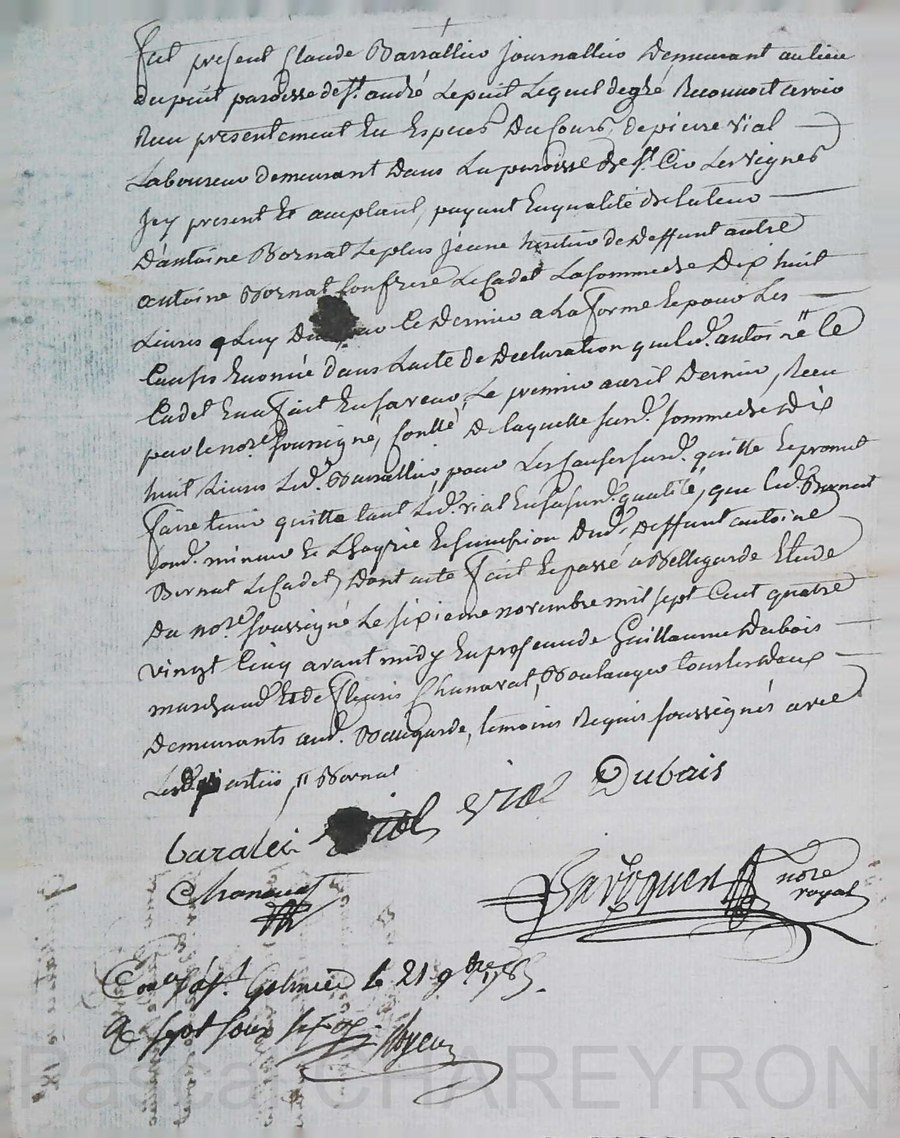 fut présent Claude Barrallier journallier demeurant au lieu
du puit paroisse de St. andré Le puit Lequel de gré Reconnoit avoir
Reçu présentement En Espèces Du Cours, de pierre Vial
Laboureur demeurant Dans La paroisse de St. Cir Les Vignes
Jcy présent Et acceptant, payant En qualité de tuteur
D'antoine Bornat Le plus jeune heritier de Deffunt autre
antoine Bornat son frere Le Cadet La somme de Dix huit
Livres a Luy par Ce Dernier a La forme Et pour Les
Causes Enoncée dans L'acte de Declaration que led. antoine Le
Cadet En a fait En faveur Le premier avril Dernier, Recu
par le nore. soussigné, Conllé, De laquelle susd. somme de Dix
huit Livres Led. Barrallier pour Les Causes susd. quitte Et promet
faire tenir quitte tant Led. vial En sa susd. qualité, que led. Bornat
sond. mineur Et L'hoyrie Et succession Dud. Deffunt antoine
Bornat Le Cadet, Dont acte fait Et passé a Bellegarde Etude
Du nore. soussigné Le sixieme novembre mil sept Cent quatre
vingt Cinq avant midy En presence de Guillaume Dubois
marchand Et de fleuris Chanavat, Boulanger tous les deux
Demeurants aud. Bellegarde, temoins Requis soussignés avec
Lesd. parties Bornat
baralei vial Dubois
Chanavat
nore
royal
Con. a St. Galmier le 21 9bre 1785.
R sept sous
Pascal CHAREYRON